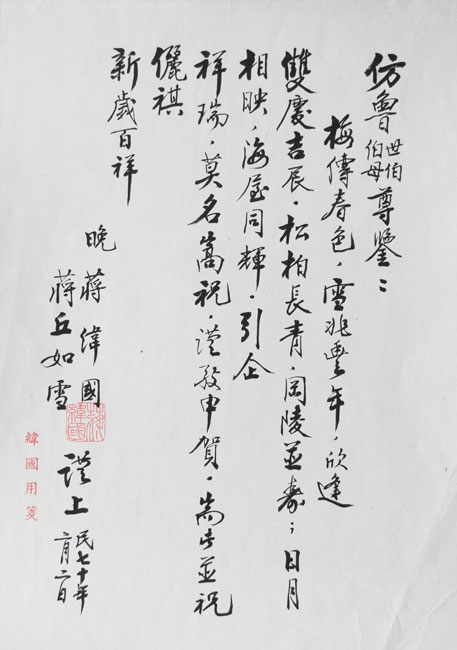 仿魯世伯伯母尊鑒：
梅傳春色，雪兆豐年，欣逢
雙慶吉辰，松柏長青，岡陵並壽；日月
相映，海屋同輝，引企
祥瑞，莫名嵩祝，謹敬申賀，耑此並祝
儷祺
新歲百祥
晚 蔣緯國
蔣丘如雪
謹上
民七十年
月二日
緯國用箋